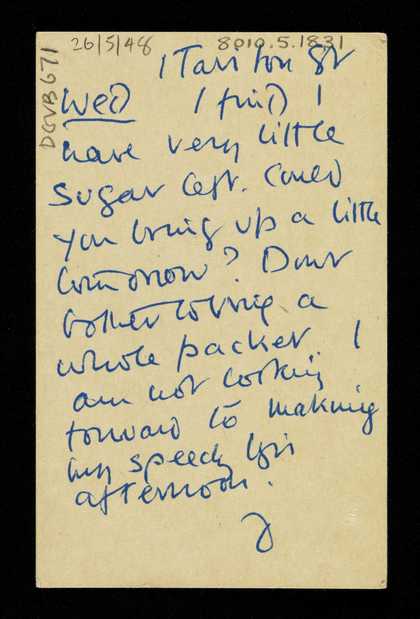 26/5/48 8010.5.1831
DGVB671
1 Tarlton St
Wed I find I
have very little
sugar left. Could
you bring up a little
tomorrow? Dont
bother to bring a
whole packet I
am not looking
forward to making
my speech this
afternoon.
J